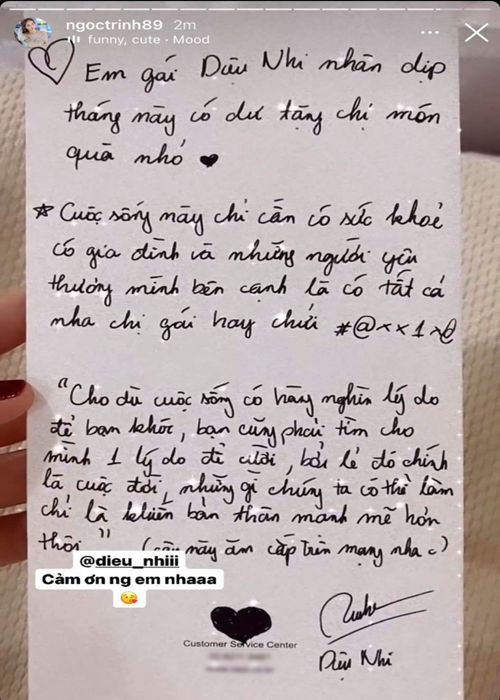 ngoctrinh89 2m
funny, cute · Mood
Em gái Diệu Nhi nhân dịp
tháng này có dư tặng chị món
quà nhỏ
Cuộc sống này chỉ cần có sức khoẻ
có gia đình và những người yêu
thương mình bên cạnh là có tất cả
nha chị gái hay chửi #@××1
"Cho dù cuộc sống có hàng nghìn lý do
để bạn khóc, bạn cũng phải tìm cho
mình 1 lý do để cười, bởi lẽ đó chính
là cuộc đời, những gì chúng ta có thể làm
chỉ là khiến bản thân mạnh mẽ hơn
thôi" (câu này ăn cắp trên mạng nha c)
@dieu_nhiii
Cảm ơn ng em nhaaa
Customer Service Center
Diệu Nhi